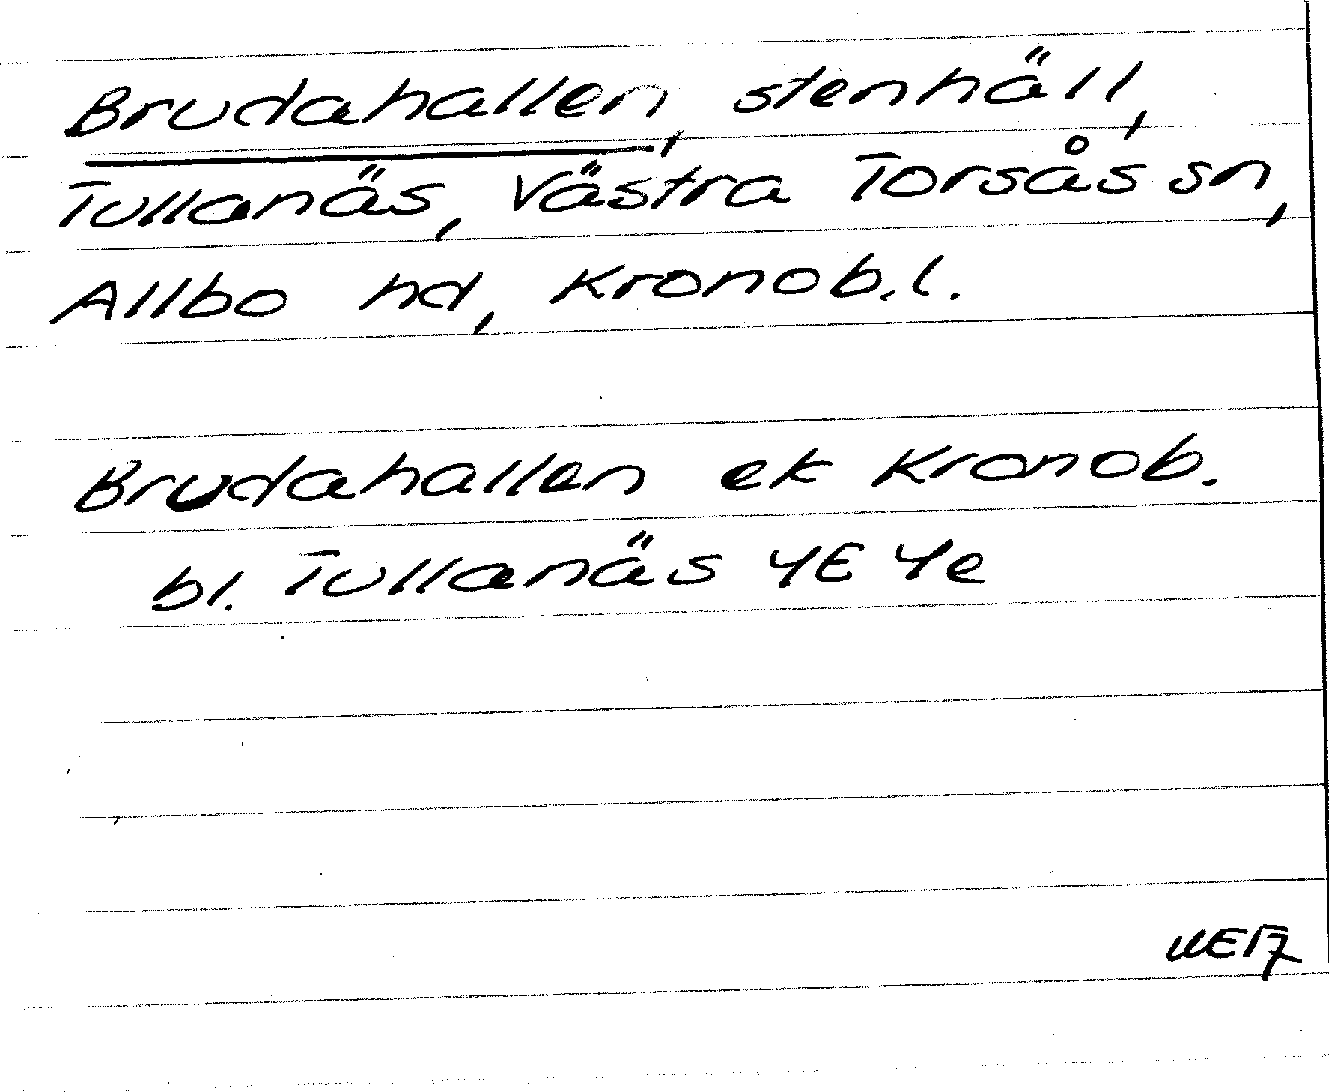 Brudahallen, stenhäll,
Tullanäs, Västra Torsås sn,
Allbo hd, Kronob.l.
Brudahallen ek Kronob.
bl. Tullanäs 4E 4e